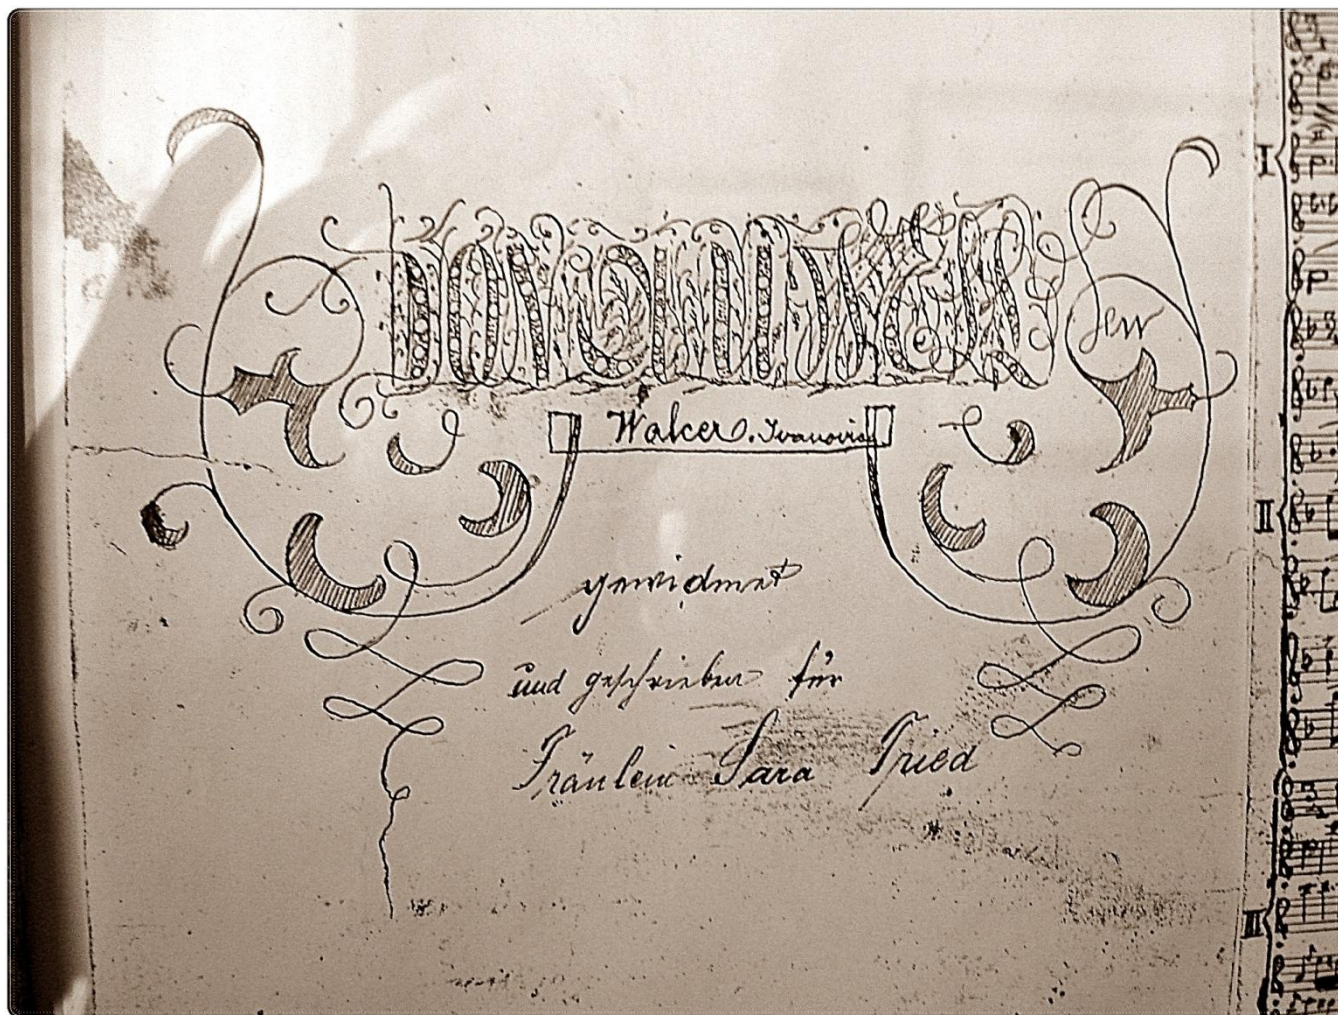 DONAUWELLEN
Walcer. Ivanovici
gewidmet
und geschrieben für
Fräulein Sara Fried
I
II
III